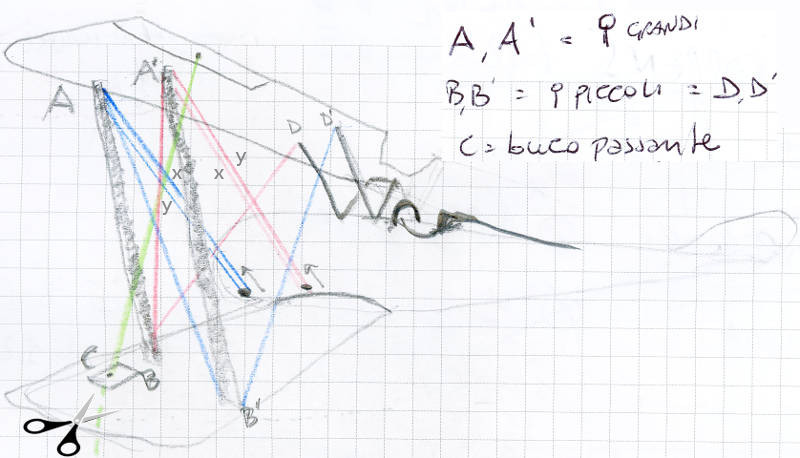 A, A' = GRANDI
B, B' = PICCOLI = D, D'
C = buco passante
A
A'
D
D'
x
x
y
y
C
B
B'